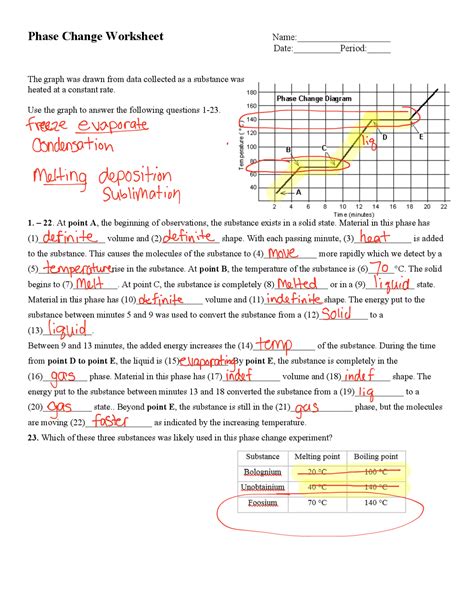 Phase Change Worksheet
Name:
Date: Period:
The graph was drawn from data collected as a substance was
heated at a constant rate.
Use the graph to answer the following questions 1-23.
freeze evaporate
Condensation
Melting deposition
Sublimation
Phase Change Diagram
Temperature (°C)
180
160
140
120
100
80
60
40
A
B
C
D
E
liq
2 4 6 8 10 12 14 16 18 20 22
Time (minutes)
1. – 22. At point A, the beginning of observations, the substance exists in a solid state. Material in this phase has
(1) definite volume and (2) definite shape. With each passing minute, (3) heat is added
to the substance. This causes the molecules of the substance to (4) move more rapidly which we detect by a
(5) temperature rise in the substance. At point B, the temperature of the substance is (6) 70 °C. The solid
begins to (7) Melt. At point C, the substance is completely (8) Melted or in a (9) liquid state.
Material in this phase has (10) definite volume and (11) indefinite shape. The energy put to the
substance between minutes 5 and 9 was used to convert the substance from a (12) Solid to a
(13) liquid
Between 9 and 13 minutes, the added energy increases the (14) temp of the substance. During the time
from point D to point E, the liquid is (15) evaporating By point E, the substance is completely in the
(16) gas phase. Material in this phase has (17) indef volume and (18) indef shape. The
energy put to the substance between minutes 13 and 18 converted the substance from a (19) liq to a
(20) gas state.. Beyond point E, the substance is still in the (21) gas phase, but the molecules
are moving (22) faster as indicated by the increasing temperature.
23. Which of these three substances was likely used in this phase change experiment?
Substance Melting point Boiling point
Bolognium 20 °C 100 °C
Unobtainium 40 °C 140 °C
Foosium 70 °C 140 °C